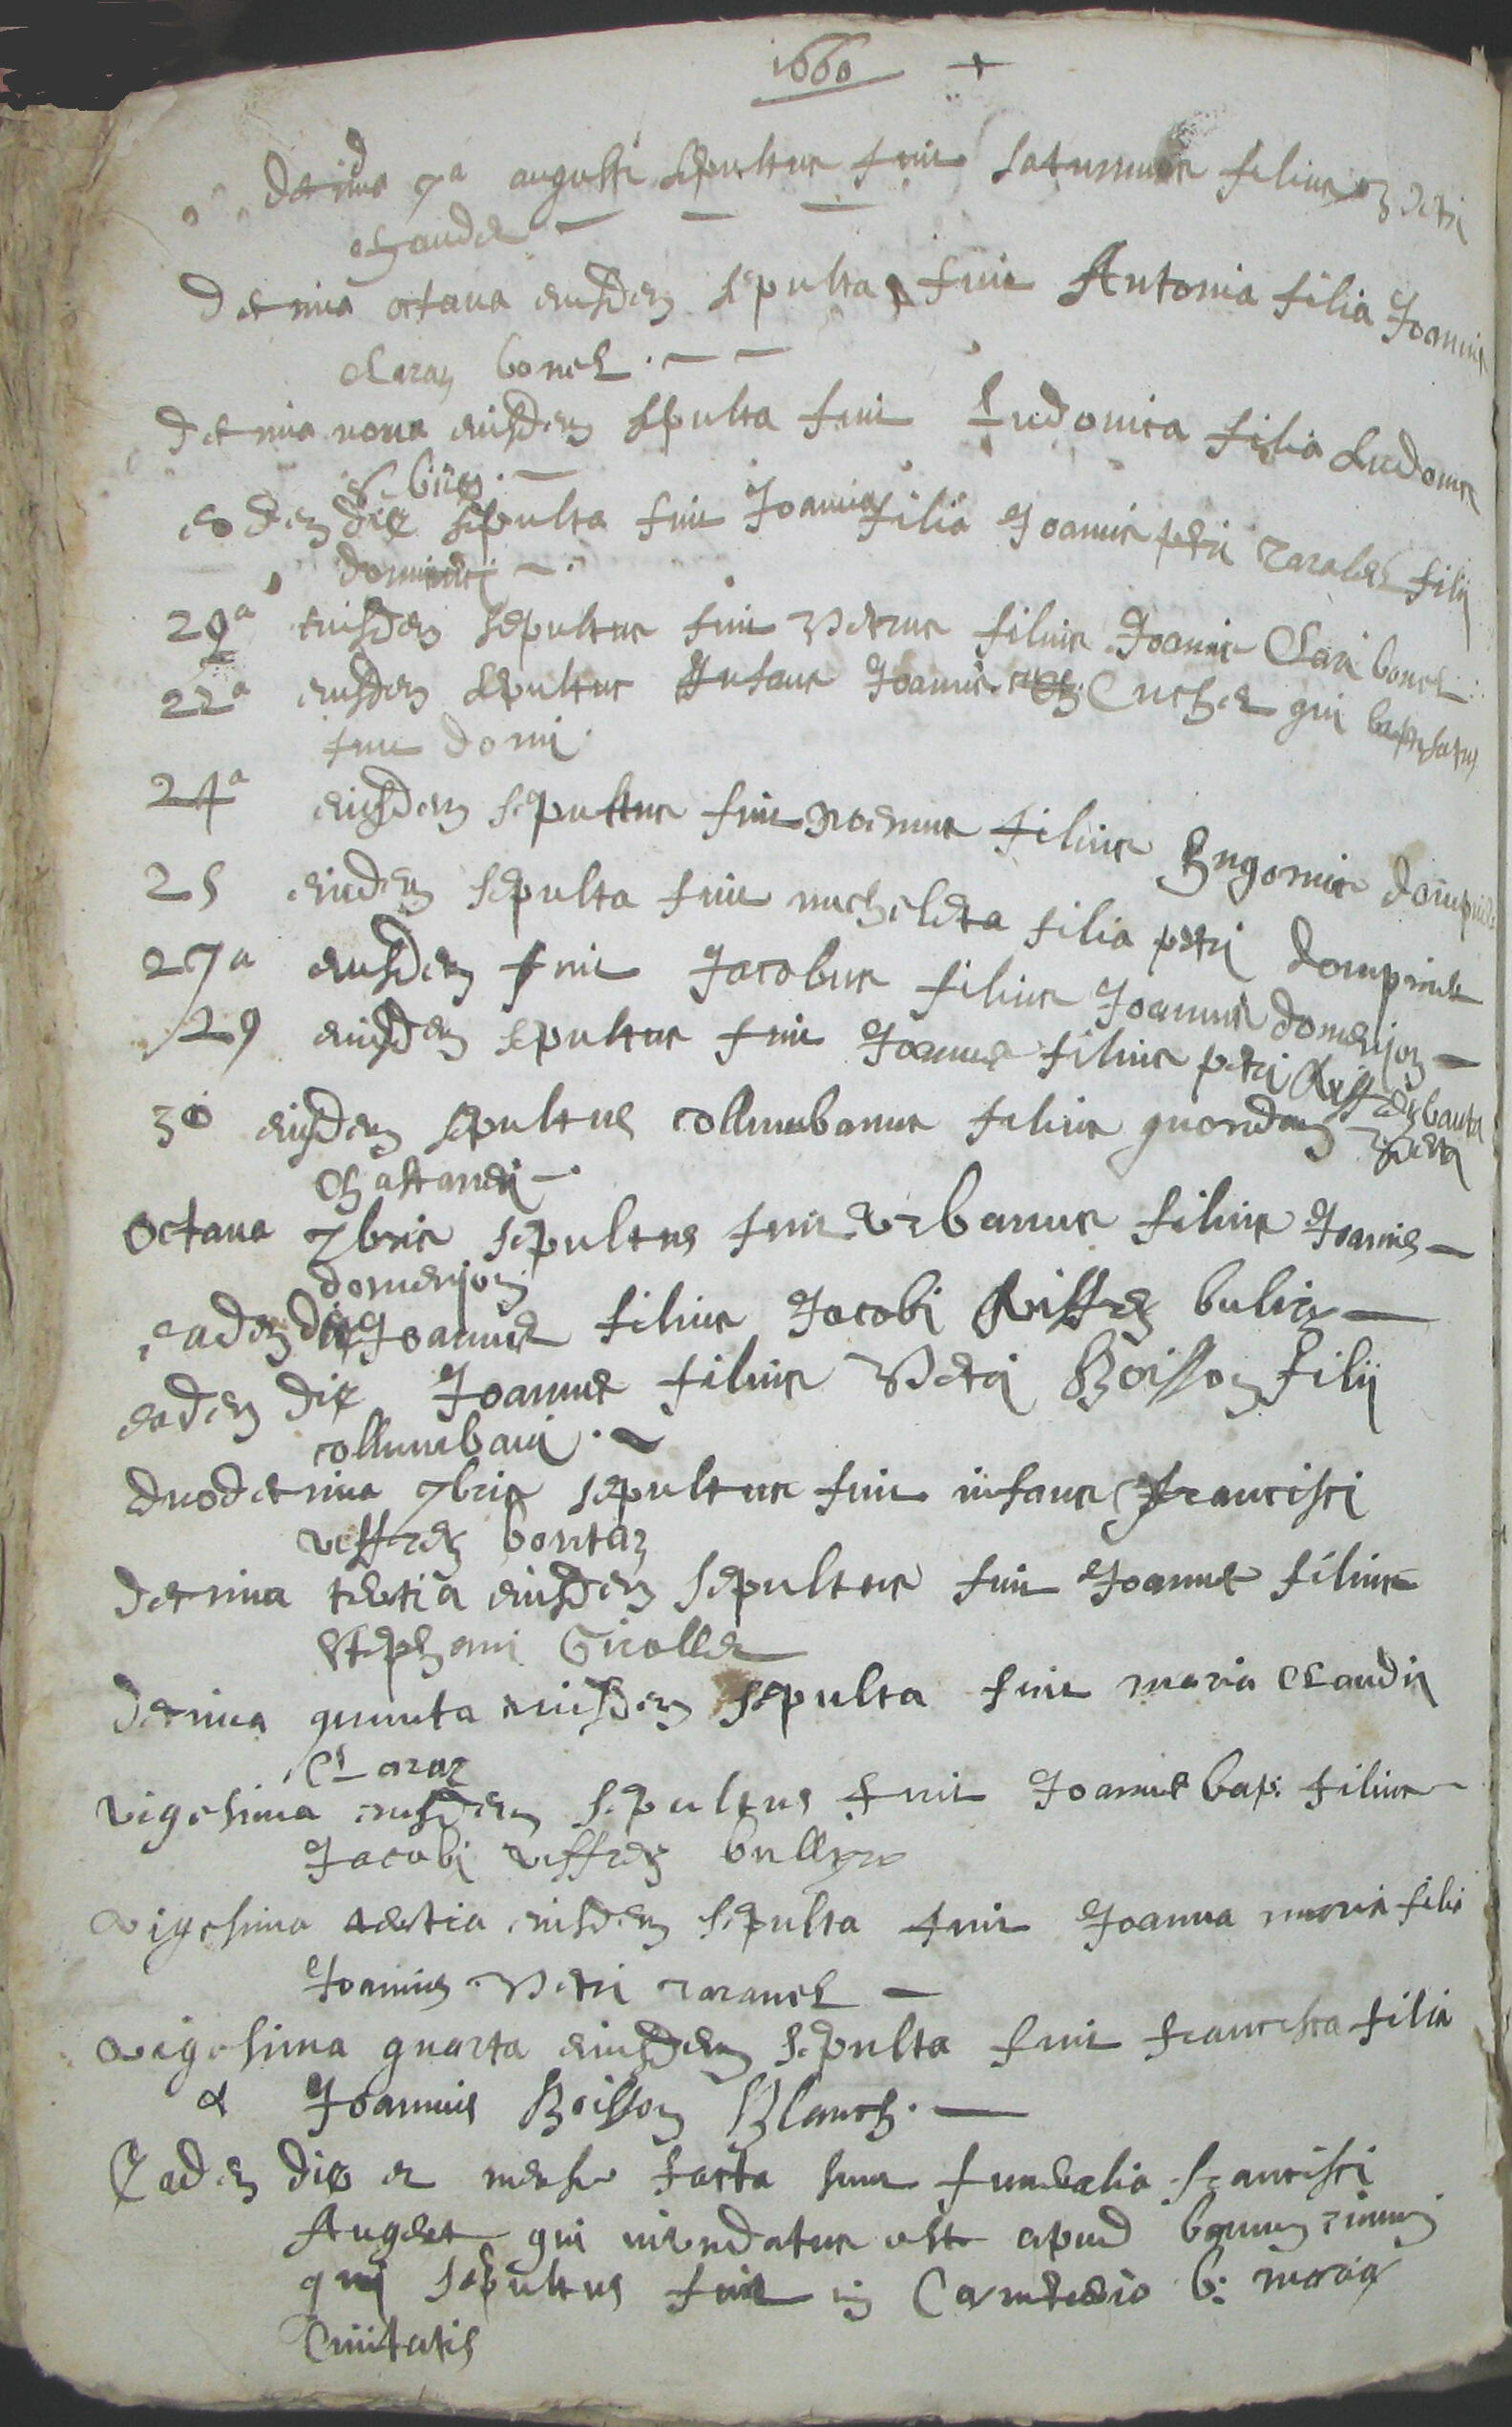 1660 +
Decima 7a augusti sepultus fuit Saturninus filius Petri
Decima octava eiusdem sepulta fuit Antonia filia Joannis
Claraz bonel.
Decima nona eiusdem sepulta fuit Ludovica filia Ludovici
eodem die sepulta fuit Joannia filia Joannis petri filii
dominici
eiusdem sepultus fuit Petrus filius Joannis Clari bonel.
22a eiusdem sepultus Infans Joannis Cuchet qui baptisatus
fuit domi.
24a eiusdem sepultus fuit filius
25 eiusdem sepulta fuit micheleta filia petri dompmet
27a eiusdem fuit Jacobus filius Joannis domenjon
29 eiusdem sepultus fuit Joannes filius petri
30 eiusdem sepultus collumbanus filius quondam Petri
Chastanei
Octava 7bris sepultus fuit Urbanus filius Joannis
domenjon
eadem die Joannes filius Jacobi Viffrey bulit
eadem die Joannes filius Petri Boisson filii
collumbani.
duodecima 7bris sepultus fuit infans francisci
Viffrey bontaz
decima tertia eiusdem sepultus fuit Joannes filius
Stephani Girollet
decima quinta eiusdem sepulta fuit maria Claudii
Claraz
vigesima eiusdem sepultus fuit Joannes bap. filius
Jacobi Viffrey
vigesima tertia eiusdem sepulta fuit Joanna maria filia
Joannis Petri ravanel
vigesima quarta eiusdem sepulta fuit francisca filia
Joannis Boisson Blanch.
Eadem die et mense facta sunt funeralia francisci
Auget qui est apud
qui sepultus fuit in Caemeterio b. mariae
Civitatis